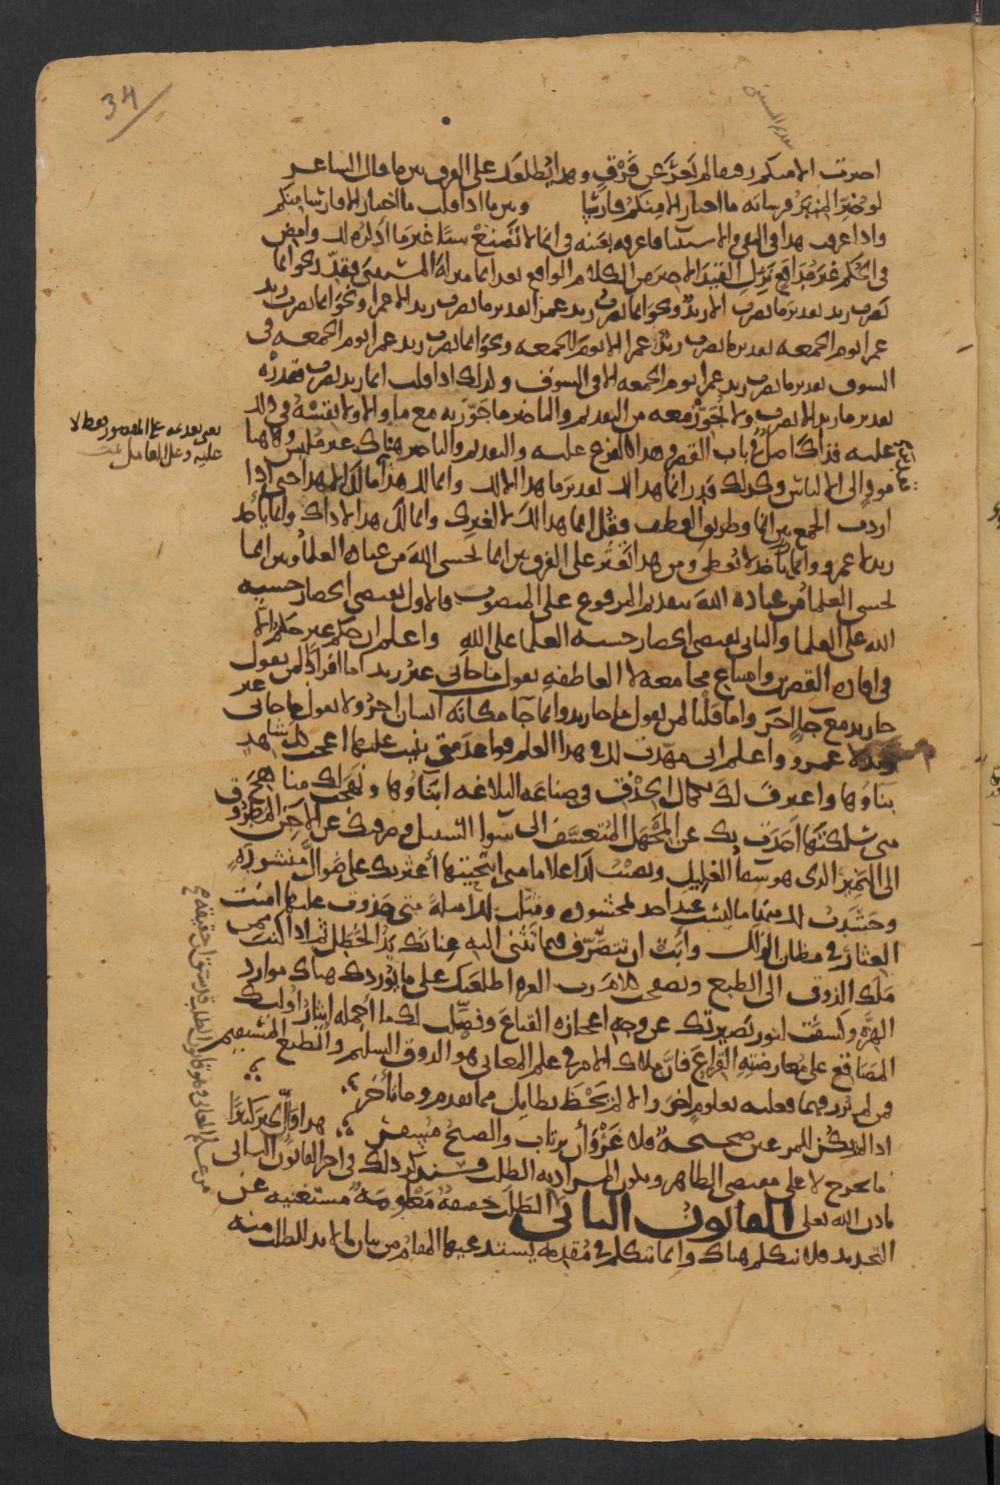 34
اخترت الا منكم رفيقا لم تعد عن فرق وهذا يطلعك على الفرق بين ما قال الشاعر
لو خير المنبر فرسانه ما اختار الا منكم فارسا وبين ما اذا قلت ما اختار الا فارسا منكم
واذا عرفت هذا في النفي والاستثناء فاعرفه بعينه في انما لا تصنع شيئا غير ما اذكره لك وامض
في الحكم غير مدافع نزل القيد الاخير من الكلام الواقع بعد انما منزلة المستثنى فقدر نحو انما
يضرب زيد تقدير ما يضرب الا زيد ونحو انما يضرب زيد عمرا تقدير ما يضرب زيد الا عمرا ونحو انما يضرب زيد
عمرا يوم الجمعه تقدير ما يضرب زيد عمرا الا يوم الجمعه ونحو انما يضرب زيد عمرا يوم الجمعه في
السوق تقدير ما يضرب زيد عمرا يوم الجمعه الا في السوق وكذلك اذا قلت انما زيد يضرب فقدره
تقدير ما زيد الا يضرب ولا تجوز معه من التقديم والتاخير ما جوزته مع ما والا ولا تقسه في ذلك
عليه فذاك اصل في باب القصر وهذا كالفرع عليه والتقديم والتاخير هناك غير ملبس وهاهنا
مود الى الالباس وكذلك قدر انما هذا لك تقدير ما هذا الا لك وانما لك هذا ما لك الا هذا حتى اذا
اردت الجمع بين انما وطريق العطف فقل انما هذا لك لا لغيرك وانما لك هذا لا ذاك وانما ياخذ
زيد لا عمرو وانما زيد ياخذ لا يعطي ومن هذا تعثر على الفرق بين انما يخشى الله من عباده العلماء وبين انما
يخشى العلماء من عباده الله بتقديم المرفوع على المنصوب فالاول يقتضي انحصار خشيه
الله على العلماء والثاني يقتضي انحصار خشيه العلماء على الله واعلم ان حكم غير حكم الا
في افاده القصرين وامتناع مجامعه لا العاطفه تقول ما جاني غير زيد اما افرادا لمن يقول
جا زيد مع جاء اخر واما قلبا لمن يقول ما جا زيد وانما جا مكانه انسان اخر ولا تقول ما جاني غير
زيد لا عمرو واعلم اني مهدت لك في هذا العلم قواعد متى بنيت عليها اعجب كل شاهد
بناؤها واعترف لك بكمال الحذق في صناعة البلاغه ابناؤها ونهجت لك مناهج
متى سلكتها اخذت بك عن المجهل المتعسف الى سواء السبيل وصرفتك عن الاجن المطروق
الى النمير الذي هو شفاء الغليل ونصبت لك اعلاما متى انتحيتها اعثرتك على ضوال منشوده
وحشدت لك منها ما ليست عند احد لمحشوده ومثلت لك امثلة متى حذوت عليها امنت
العثار في مظان الزلل وابت ان تتصرف فيما تثني اليه عنانك يد الخطل ثم اذا كنت ممن
ملك الذوق الى الطبع وتصفحت كلام رب العزه اطلعتك على ما يوردك هناك موارد
الهزه وكشفت لنور بصيرتك عن وجه اعجازه القناع وفصلت لك ما اجمله ايثار اولئك
المصاقع على معارضته القراع فان ملاك الامر في علم المعاني هو الذوق السليم والطبع المستقيم
فمن لم يرزقهما فعليه بعلوم اخر والا لم يحظ بطايل مما تقدم وما تاخر
اذا لم تكن للمرء عين صحيحة فلا غرو ان يرتاب والصبح مسفر هذا وان الخبر كثيرا
ما يخرج لا على مقتضى الظاهر ويكون المراد به الطلب وسنذكر ذلك في اخر القانون الثاني
باذن الله تعالى القانون الثاني الطلب حقيقته معلومه مستغنيه عن
التحديد فلا نتكلم هناك وانما نتكلم في مقدمه يستدعيها المقام من بيان ما لا بد للطلب منه